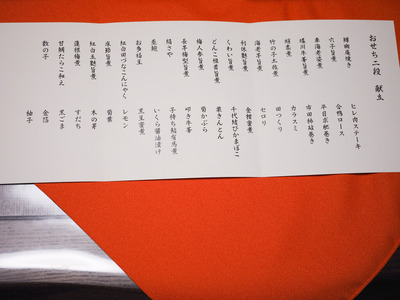 おせち二段　献立
鰆幽庵焼き
六子旨煮
車海老姿煮
堀川牛蒡旨煮
蛸柔煮
竹の子土佐煮
海老芋旨煮
利休麩旨煮
くわい旨煮
どんこ椎茸旨煮
梅人参旨煮
長芋梅型旨煮
絹さや
萩麩
お多福豆
紅白田づなこんにゃく
床節旨煮
紅白玉麩旨煮
蓮根梅煮
甘鯛たらこ和え
数の子
ヒレ肉ステーキ
合鴨ロース
平目京紙巻き
市田柿砧巻き
カラスミ
田つくり
セロリ
金柑蜜煮
千代結びかまぼこ
栗きんとん
菊かぶら
叩き牛蒡
子持ち鮎有馬煮
いくら醤油漬け
黒豆蜜煮
レモン
菊葉
木の芽
すだち
黒ごま
金箔
柚子